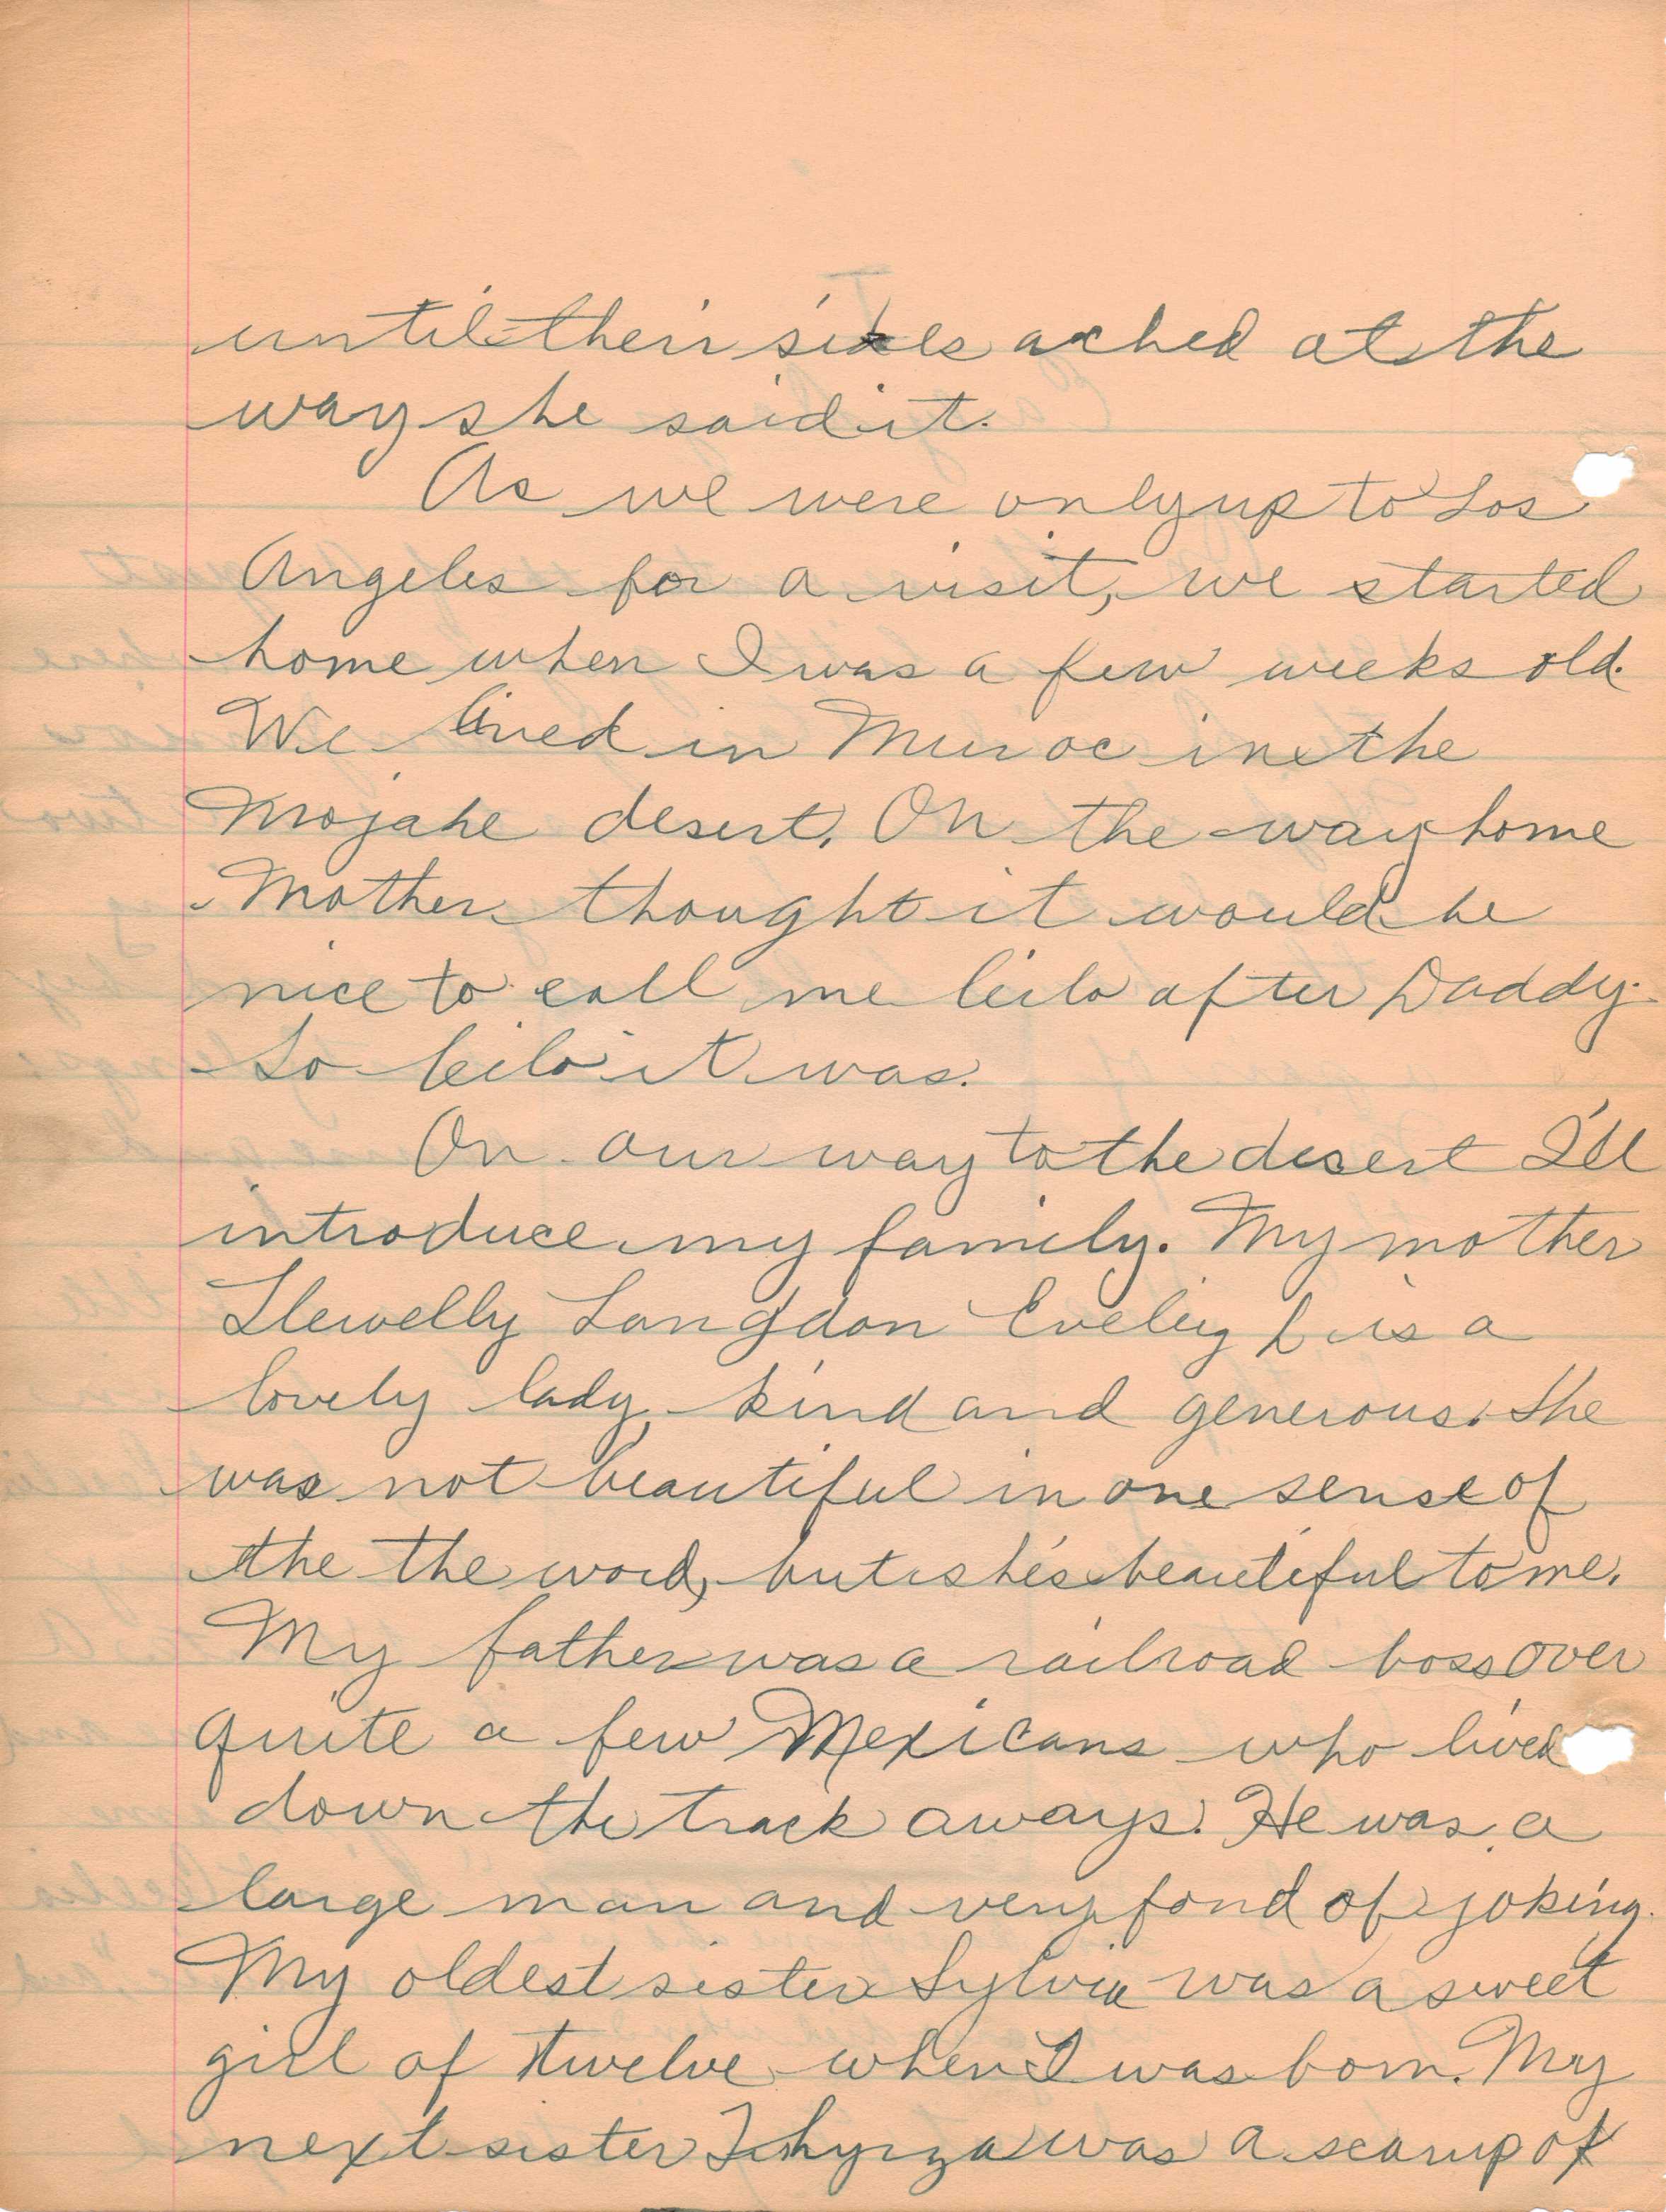 until their sides ached at the
way she said it.
As we were only up to Los
Angeles for a visit, we started
home when I was a few weeks old.
We lived in Muroc in the
Mojahe desert. On the way home
Mother thought it would be
nice to call me Leilo after Daddy.
So Leilo it was.
On our way to the desert I'll
introduce my family. My mother
Llewelly Langdon Eveleig h is a
lovely lady, kind and generous. She
was not beautiful in one sense of
the the word, but she's beautiful to me.
My father was a railroad boss over
quite a few Mexicans who lived
down the track aways. He was a
large man and very fond of joking.
My oldest sister Sylvia was a sweet
girl of twelve when I was born. My
next sister was a scamp of